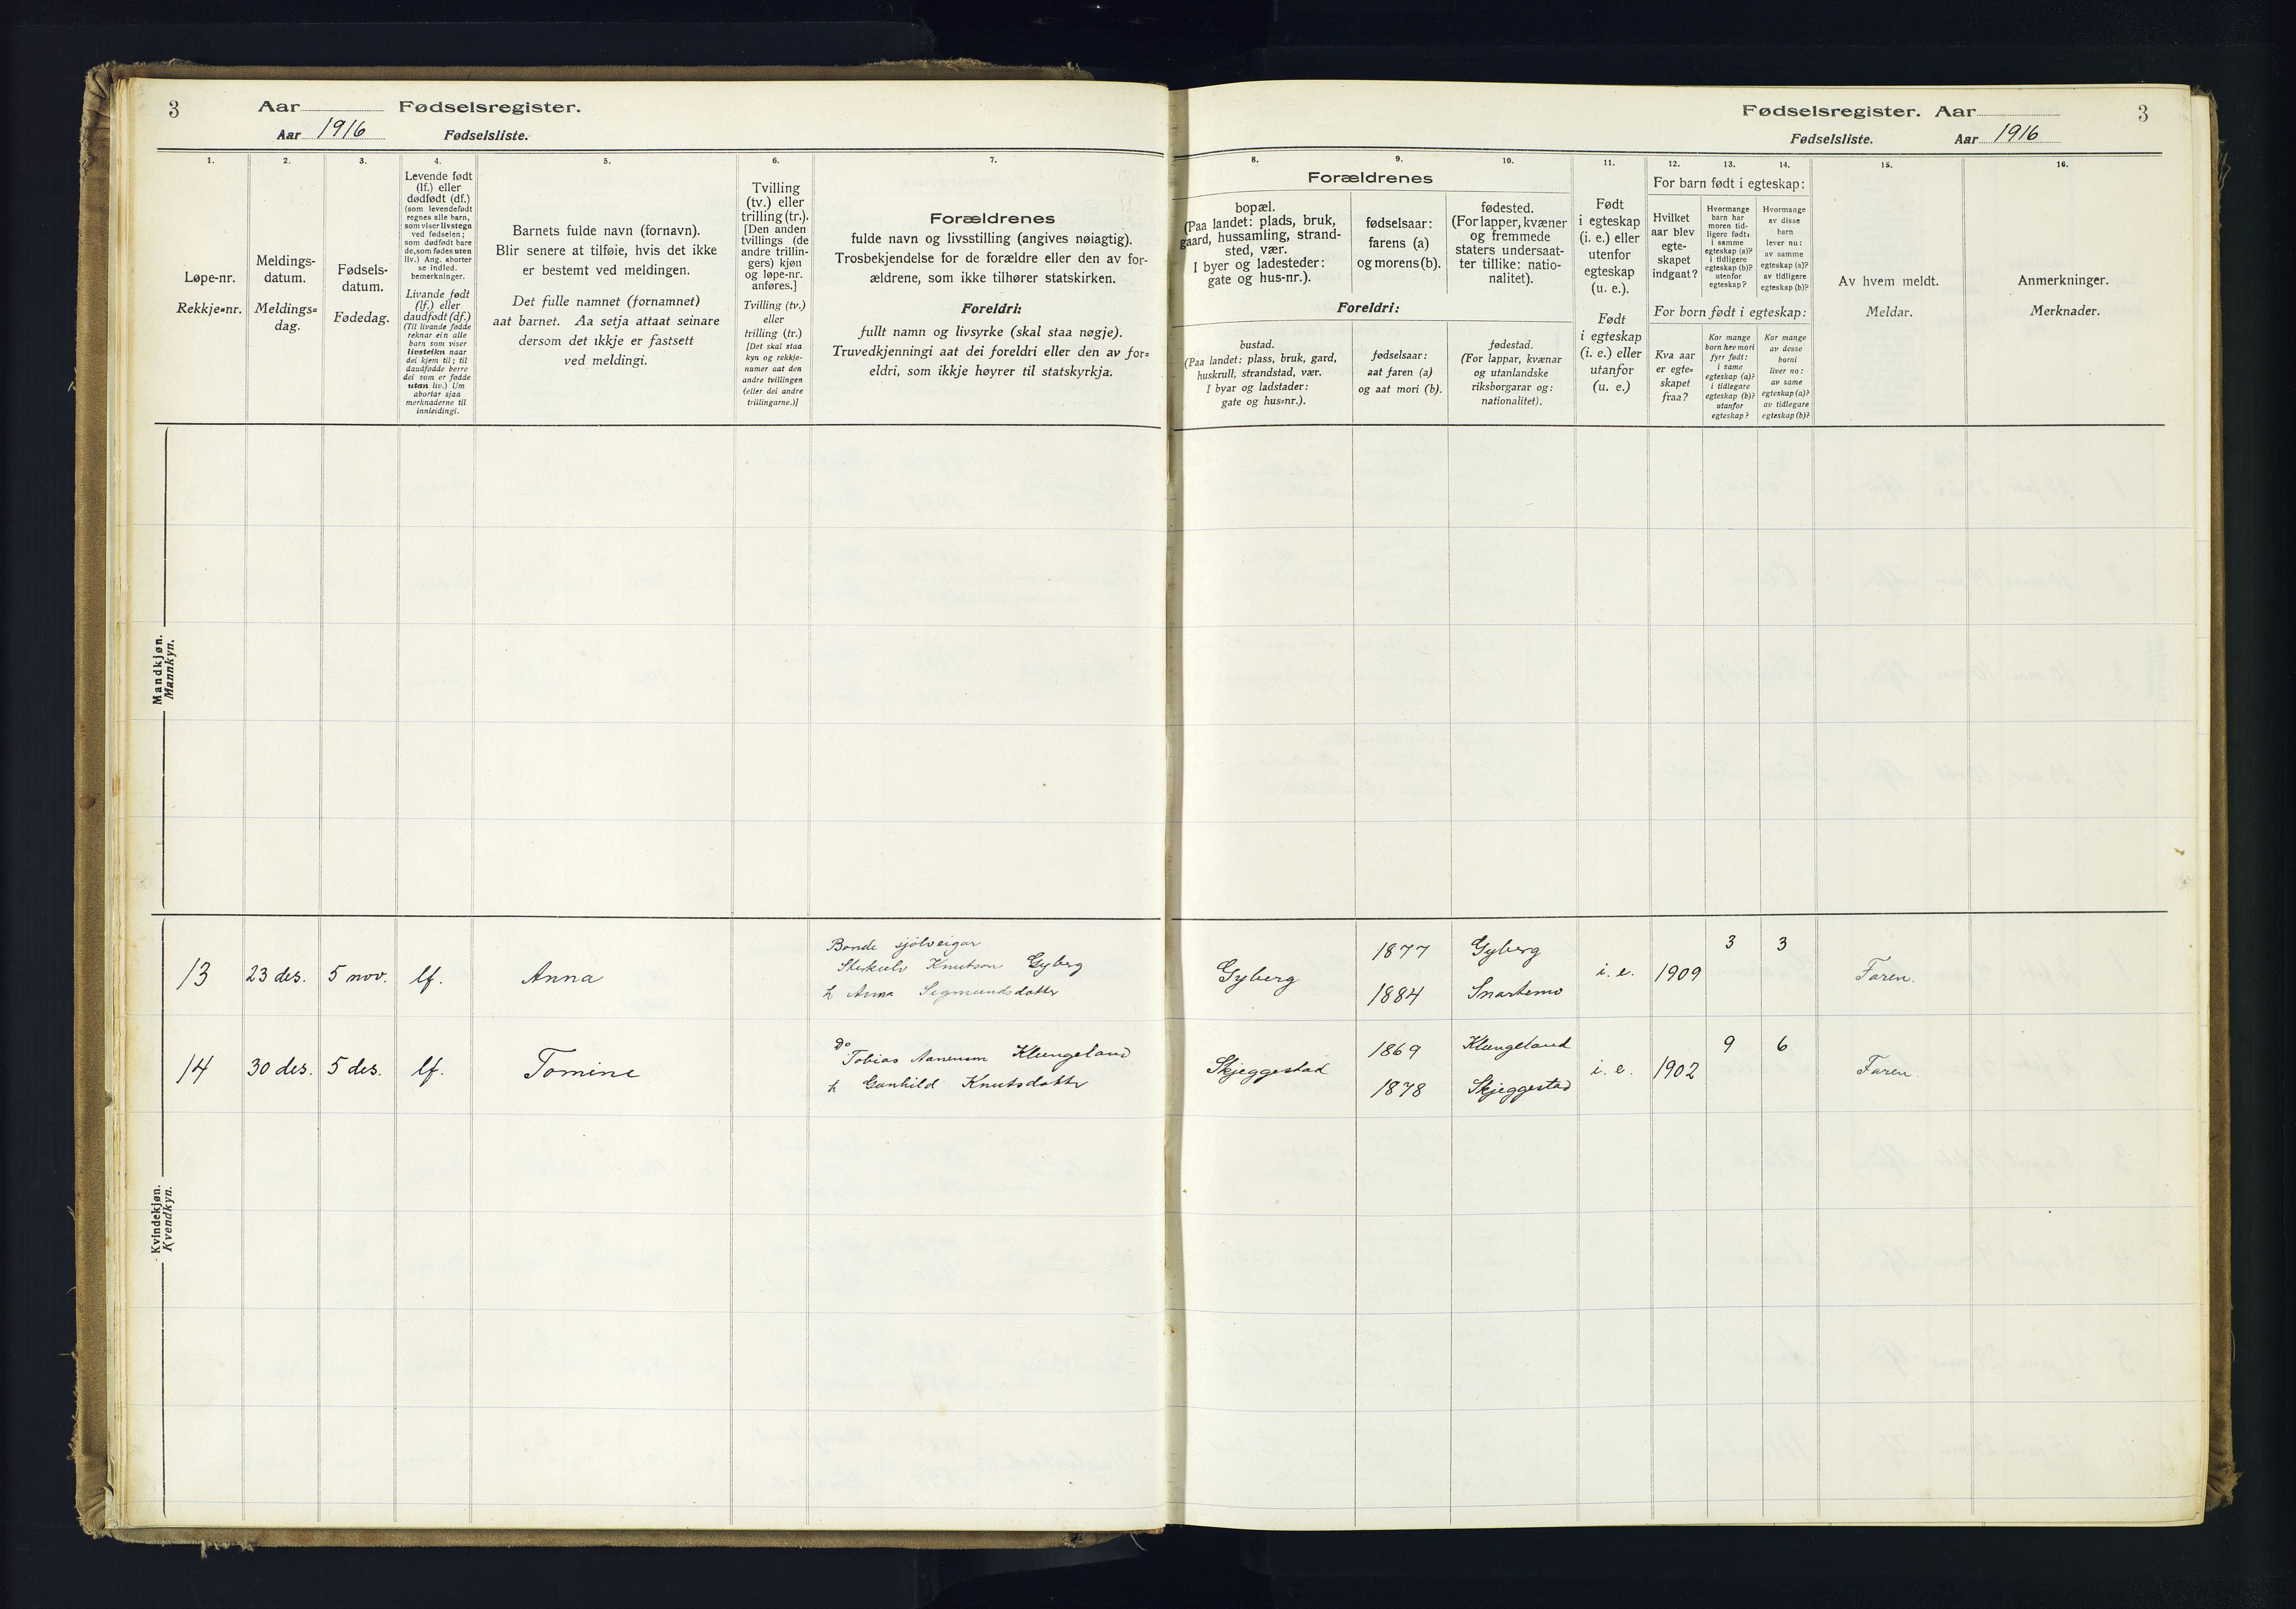 3
Aar
Fødselsregister.
Aar 1916
Fødselsliste.
1.
Løpe-nr.
Rekkje=nr.
2.
Meldings-
datum.
Meldings=
dag.
3.
Fødsels-
datum.
Fødedag.
4.
Levende født
(lf.) eller
dødfødt (df.)
(som levendefødt
regnes alle barn,
som viser livstegn
ved fødselen;
som dødfødt bare
de, som fødes uten
liv.) Ang. aborter
se indled.
bemerkninger.
Livande født
(lf.) eller
daudfødt (df.)
(Til livande fødde
reknar ein alle
barn som viser
livsteikn naar
dei kjem til; til
daudfødde berre
dei som er fødde
utan liv.) Um
abortar sjaa
merknaderne til
innleidingi.
5.
Barnets fulde navn (fornavn).
Blir senere at tilføie, hvis det ikke
er bestemt ved meldingen.
Det fulle namnet (fornamnet)
aat barnet. Aa setja attaat seinare
dersom det ikkje er fastsett
ved meldingi.
6.
Tvilling
(tv.) eller
trilling (tr.).
[Den anden
tvillings (de
andre trillin-
gers) kjøn
og løpe-nr.
anføres.]
Tvilling (tv.)
eller
trilling (tr.)
[Det skal staa
kyn og rekkje-
numer aat den
andre tvillingen
(eller dei andre
trillingarne.)]
7.
Forældrenes
fulde navn og livsstilling (angives nøiagtig).
Trosbekjendelse for de forældre eller den av for-
ældrene, som ikke tilhører statskirken.
Foreldri:
fullt namn og livsyrke (skal staa nøgje).
Truvedkjenningi aat dei foreldri eller den av for=
eldri, som ikkje høyrer til statskyrkja.
Fødselsregister. Aar
3
Fødselsliste.
Aar 1916
Forældrenes
8.
bopæl.
(Paa landet: plads, bruk,
gaard, hussamling, strand-
sted, vær.
I byer og ladesteder:
gate og hus-nr.).
9.
fødselsaar:
farens (a)
og morens (b).
10.
fødested.
(For lapper, kvæner
og fremmede
staters undersaat-
ter tillike: natio-
nalitet).
Foreldri:
bustad.
(Paa landet: plass, bruk, gard,
huskrull, strandstad, vær.
I byar og ladstader:
gate og hus=nr.).
fødselsaar:
aat faren (a)
og aat mori (b).
fødestad.
(For lappar, kvænar
og utanlandske
riksborgarar og:
nationalitet).
11.
Født
i egteskap
(i. e.) eller
utenfor
egteskap
(u. e.).
Født
i egteskap
(i. e.) eller
utanfor
(u. e.)
For barn født i egteskap:
12.
Hvilket
aar blev
egte-
skapet
indgaat?
13.
Hvormange
barn har
moren tid-
ligere født:
i samme
egteskap (a)?
i tidligere
egteskap (b)?
utenfor
egteskap?
14.
Hvormange
av disse
barn
lever nu:
av samme
egteskap (a)?
av tidligere
egteskap (b)?
For born født i egteskap:
Kva aar
er egte=
skapet
fraa?
Kor mange
born hev mori
fyrr født:
i same
egteskap (a)?
i tidlegare
egteskap (b)?
utanfor
egteskap?
Kor mange
av desse
borni
liver no:
av same
egteskap (a)?
av tidlegare
egteskap (b)?
15.
Av hvem meldt.
Meldar.
16.
Anmerkninger.
Merknader.
Mandkjøn.
Mannkyn.
Kvindekjøn.
Kvendkyn.
Bonde sjølveigar
13 23 des. 5 nov. lf. Anna Knutson Gyberg
h Anna Sigmundsdotter
Gyberg 1877 Gyberg i. e. 1909 3 3 Faren.
1884 Snartemo
Do
14 30 des. 5 des. lf. Tomine Tobias Aanenson Klungeland
h Gunhild Knutsdotter
Skjeggestad 1869 Klungeland i. e. 1902 9 6 Faren.
1878 Skjeggestad